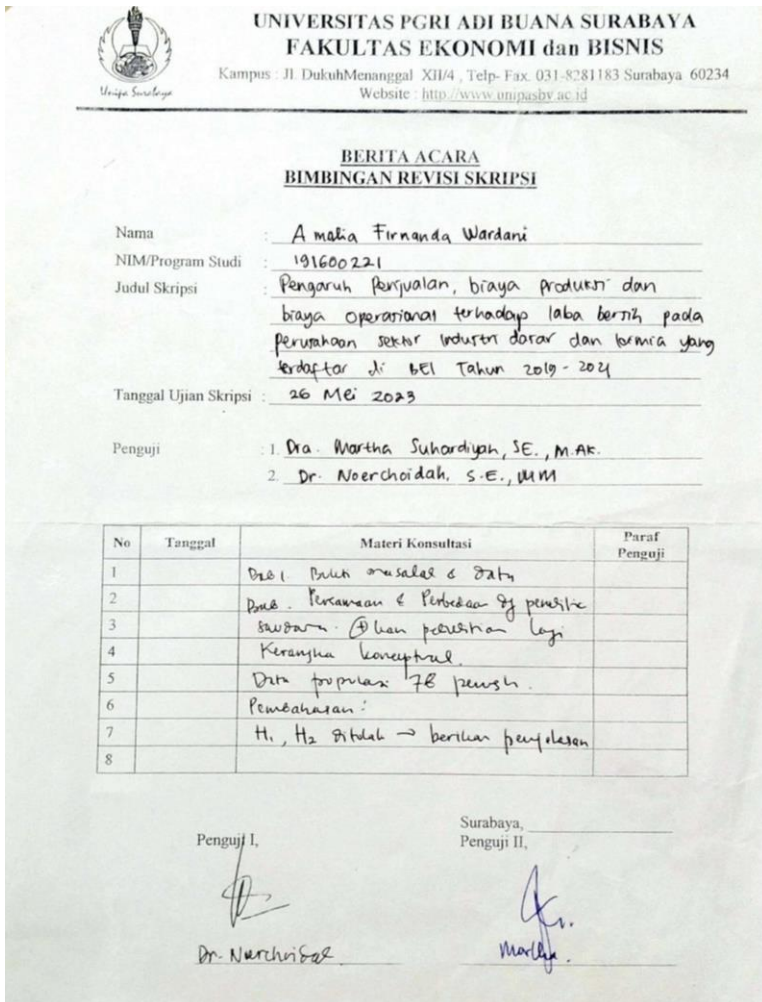 UNIVERSITAS PGRI ADI BUANA SURABAYA
FAKULTAS EKONOMI dan BISNIS
Kampus : Jl. DukuhMenanggal XII/4 , Telp- Fax. 031-8281183 Surabaya 60234
Website : http://www.unipasby.ac.id
Unipa Surabaya
BERITA ACARA
BIMBINGAN REVISI SKRIPSI
Nama : Amalia Firnanda Wardani
NIM/Program Studi : 191600221
Judul Skripsi : Pengaruh Penjualan, biaya produksi dan
biaya operasional terhadap laba bersih pada
perusahaan sektor industri dasar dan kimia yang
terdaftar di BEI Tahun 2019 - 2021
Tanggal Ujian Skripsi : 26 Mei 2023
Penguji : 1. Dra. Martha Suhardiyah, SE., M.AK.
2. Dr. Noerchoidah, S.E., MM
No Tanggal Materi Konsultasi Paraf Penguji
1 Bab 1. Bukti masalah & data
2 Persamaan & Perbedaan dg
3 saudara. + kan penelitian lagi
4 Kerangka konseptual.
5 Data populasi 78 perush.
6 Pembahasan :
7 H1, H2 ditolak → berikan penjelasan
8
Surabaya,
Penguji I, Penguji II,
Dr. Noerchoidah Martha.